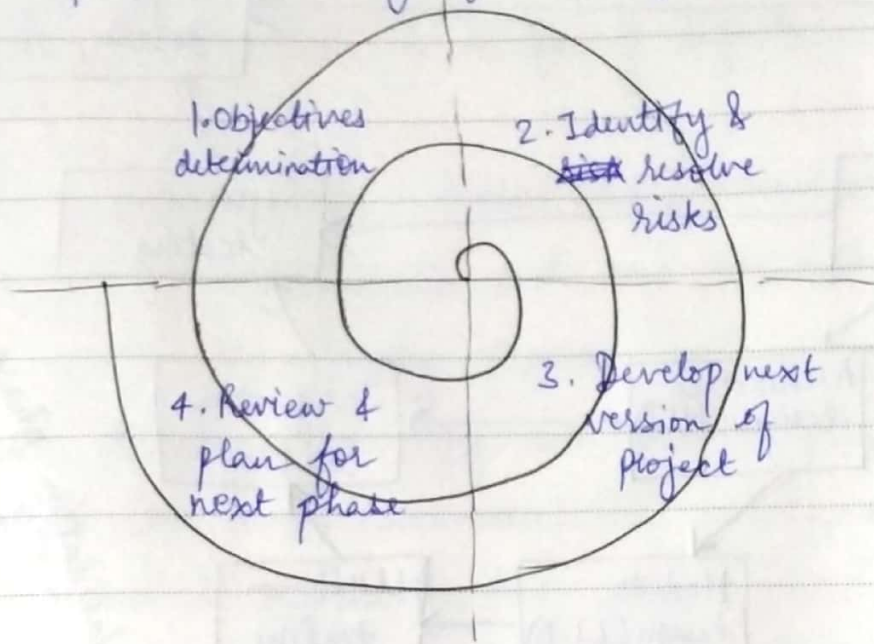 1. Objectives
determination
2. Identify &
resolve
risks
3. Develop next
version of
project
4. Review &
plan for
next phase